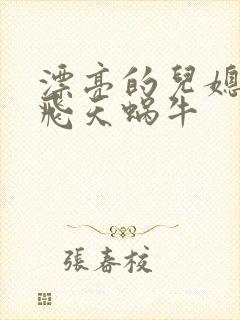 漂亮的兒媳
飛天蝸牛
張春校